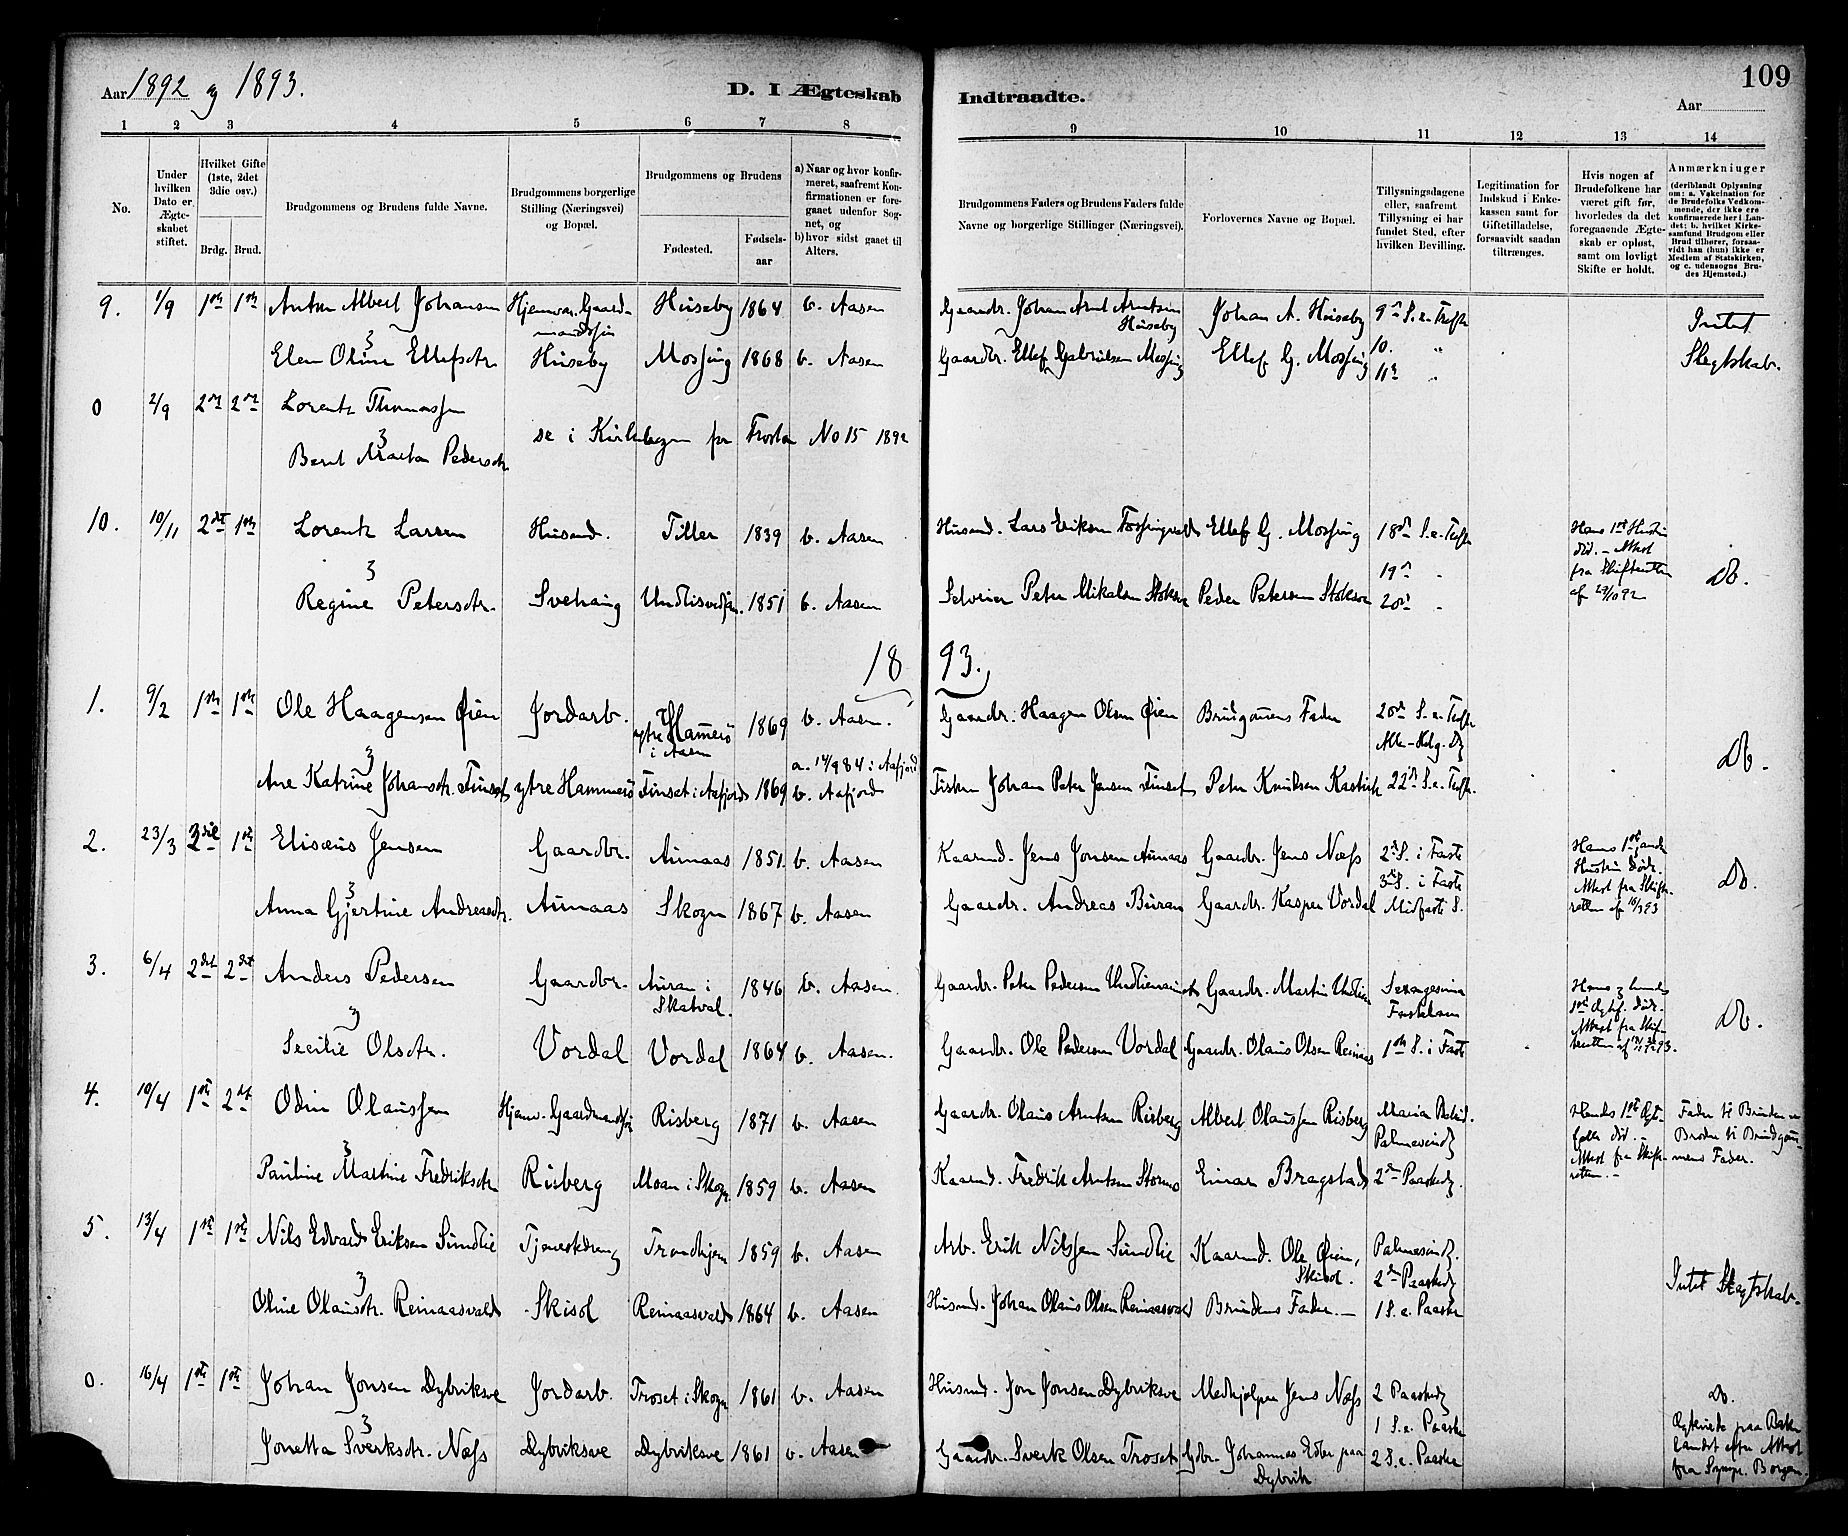 Aar 1892 og 1893.
D. I Ægteskab Indtraadte.
109
Aar
1 2 3 4 5 6 7 8 9 10 11 12 13 14
No.
Under hvilken Dato er Ægteskabet stiftet.
Hvilket Gifte (1ste, 2det 3die osv.)
Brdg. Brud.
Brudgommens og Brudens fulde Navne.
Brudgommens borgerlige Stilling (Næringsvei) og Bopæl.
Brudgommens og Brudens
Fødested.
Fødsels-aar
a) Naar og hvor konfirmeret, saafremt Konfirmationen er foregaaet udenfor Sognet, og
b) hvor sidst gaaet til Alters.
Brudgommens Faders og Brudens Faders fulde Navne og borgerlige Stillinger (Næringsvei).
Forlovernes Navne og Bopæl.
Tillysningsdagene eller, saafremt Tillysning ei har fundet Sted, efter hvilken Bevilling.
Legitimation for Indskud i Enkekassen samt for Giftetilladelse, forsaavidt saadan tiltrænges.
Hvis nogen af Brudefolkene har været gift før, hvorledes da det foregaaende Ægteskab er opløst, samt om lovligt Skifte er holdt.
Anmærkninger
(deriblandt Oplysning om: a. Vakcination for de Brudefolks Vedkommende, der ikke ere konfirmerede her i Landet: b. hvilket Kirkesamfund Brudgom eller Brud tilhører, forsaavidt han (hun) ikke er Medlem af Statskirken, og c. udensogns Brudes Hjemsted.)
9. 1/9 1ste 1ste Anton Albert Johansen Hjemvær. Gaardmandssøn Huseby 1864 b. Aasen Gaardbr. Johan Arnt Arntsen Huseby Johan A. Huseby 9de S. e. Trefh. Intet
Elen Oline Ellefsdtr. Huseby Mossing 1868 b. Aasen Gaardbr. Ellef Gabrielsen Mossing Ellef G. Mossing 10. " 11te " Slegtskab.
0 2/9 2net 2net Lorentz Thomassen
Berit Marta Pedersdtr. se i Kirkebogen for Frosta No 15 1892
10. 10/11 2det 1ste Lorentz Larsen Husmd. Tiller 1839 b. Aasen Husmd. Lars Eriksen Fossingvald Ellef G. Mossing 18de S. e. Trefh. Hans 1ste Hustru død. - Attest fra Skifteretten af 29/10 92 Do.
Regine Petersdtr. Svehaug 1851 b. Aasen Selveier Peter Mikalsen Peder Petersen 19de " 20de "
1893.
1. 9/2 1ste 1ste Ole Haagensen Øien Jordarb. ytre Hammerø i Aasen 1869 b. Aasen. Gaardbr. Haagen Olsen Øien Brudgommens Fader 20de S. e. Trefh. Alle-Helg. Dg Do.
Ane Katrine Johansdtr. Finset ytre Hammerø Finset i Aafjord 1869 a. 14/9 84 i Aafjord b. Aafjord Fisker Johan Peter Jensen Finset Peter 22de S. e. Trefh.
2. 23/3 3die 1ste Elisæus Jensen Gaardbr. Aunaas 1851 b. Aasen Kaarmd. Jens Jonsen Aunaas Gaardbr. Jens Næss 2den S. i Faste Hans 1ste og anden Hustru døde. Attest fra Skifteretten af 16/3 93 Do.
Anna Gjertine Andreasdtr. Aunaas Skogn 1867 b. Aasen Gaardbr. Andreas Buran Gaardbr. Kasper Vordal 3die S. i Faste Midfaste S.
3. 6/4 2det 2det Anders Pedersen Gaardbr. Auran i Skatval. 1846 b. Aasen Gaardbr. Peter Pedersen Gaardbr. Martin Sexagesima Fastelavn Hans og hendes 1ste Ægtef. døde. Attest fra Skifteretten Do.
Secilie Olsdtr. Vordal Vordal 1864 b. Aasen. Gaardbr. Ole Pedersen Vordal Gaardbr. Olaus Olsen Reinaas 1ste S. i Faste
4. 10/4 1ste 2det Odin Olaussen Hjemv. Gaardmandssøn Risberg 1871 b. Aasen Gaardbr. Olaus Arntsen Risberg Albert Olaussen Risberg Maria Bebud. Palmesøndg Hendes 1ste Ægtefelle død. - Attest fra Skifteretten. - Fader til Bruden er Broder til Brudgommens Fader.
Pauline Martine Fredriksdtr. Risberg Moan i Skogn 1859 b. Aasen Kaarmd. Fredrik Arntsen Einar Bragstad 2den Paaskedg.
5. 13/4 1ste 1ste Nils Edvard Eriksen Sundlie Tjenestedreng Trondhjem 1859 b. Aasen Arb. Erik Nilssen Sundlie Kaarmd. Ole Øien, Skisol. Palmesøndg. 2den Paaskedg Intet Slegtskab.
Oline Olausdtr. Reinaasvald Skisol Reinaasvald 1864 b. Aasen Husmd. Johan Olaus Olsen Reinaasvald Brudens Fader. - 1 S. e. Paaske
0. 16/4 1ste 1ste Johan Jonsen Dybriksve Jordarb. Troset i Skogn 1861 b. Aasen Husmd. Jon Jonsen Dybriksve Medhjælper Jens Næss 2 Paaskedg Do.
Jonetta Sverksdtr. Næss Dybriksve Dybriksve 1861 b. Aasen Gaardbr. Sverk Olsen Troset Gdbr. Johannes paa Dybvik 1 S. e. Paaske 2 S. e. Paaske Ægteviede paa efter Attest fra Borgen.